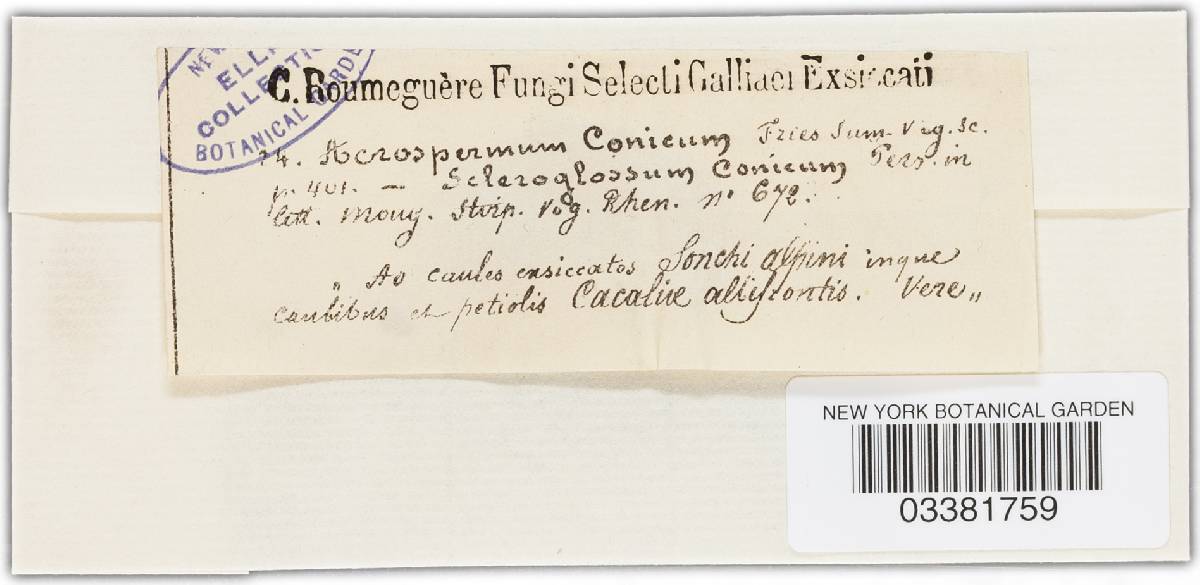 NEW
ELLIS
COLLECTION
BOTANICAL GARDEN
C. Roumeguère Fungi Selecti Galliaei Exsiccati
74. Acrospermum Conicum Fries Sum. Veg. Sc.
p. 401. — Scleroglossum Conicum Pers. in
litt. Moug. Stirp. Vog. Rhen. n° 672.
„ Ad caules exsiccatos Sonchi alpini inque
caulibus et petiolis Cacaliæ albifrontis. Vere „
NEW YORK BOTANICAL GARDEN
03381759